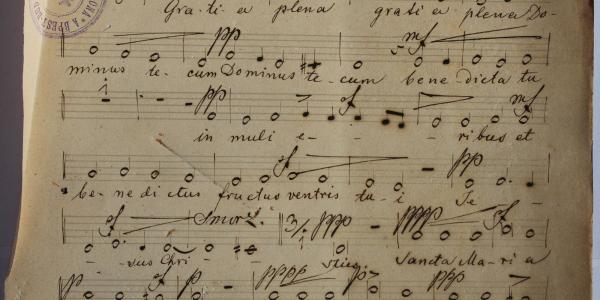 Gra-ti-a plena grati-a plena Do-
pp mf
minus te-cum Dominus te-cum bene-dicta tu
pp sf mf
in muli e - - ribus et
sf pp
be-ne dictus fructus ventris tu-i Je
sf Smorz. 3/1 ppp pppp sf
- -sus Chri - - Sancta Ma-ri a
p sf p pppp p ppp